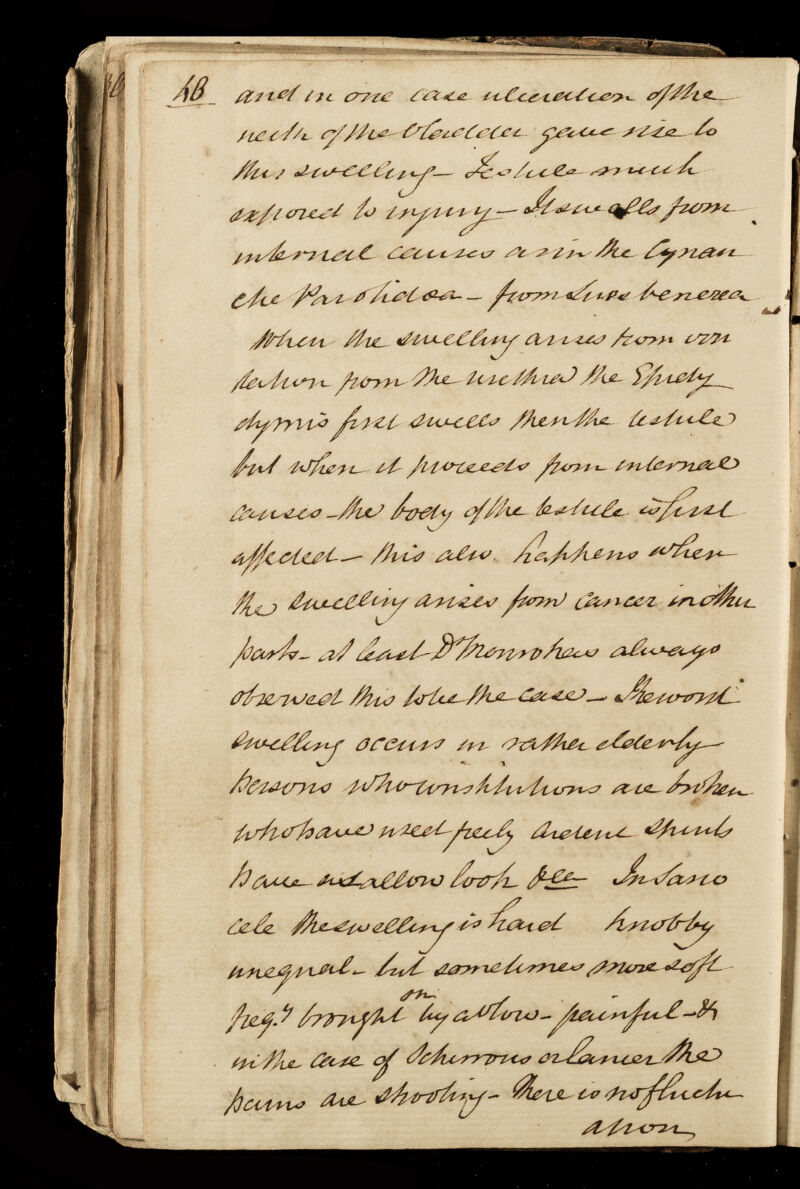 48 and in one case ulceration of the
neck of the bladder gave rise to
this swelling – Testicle much
exposed to injury – It swells from
internal causes as in the Cynan
che Parotidœa – from Lues Venerea
When the swelling arises from irri
tation from the urethra the Epidy
dymis first swells then the testicle
but when it proceeds from internal
causes – the body of the testicle is first
affected – this also happens when
the swelling arises from cancer in other
parts – at least Dr Monro has always
observed this to be the case – The worst
swelling occurs in rather elderly
persons who constitutions are broken
who have used freely Ardent Spirits
have a sallow look &cc In Sarco
cele the swelling is hard knobby
unequal – but sometimes more soft
freq.y brought on by a blow – painful – &
in the case of Schirrous or Cancer the
pains are shooting – There is no fluctu
ation